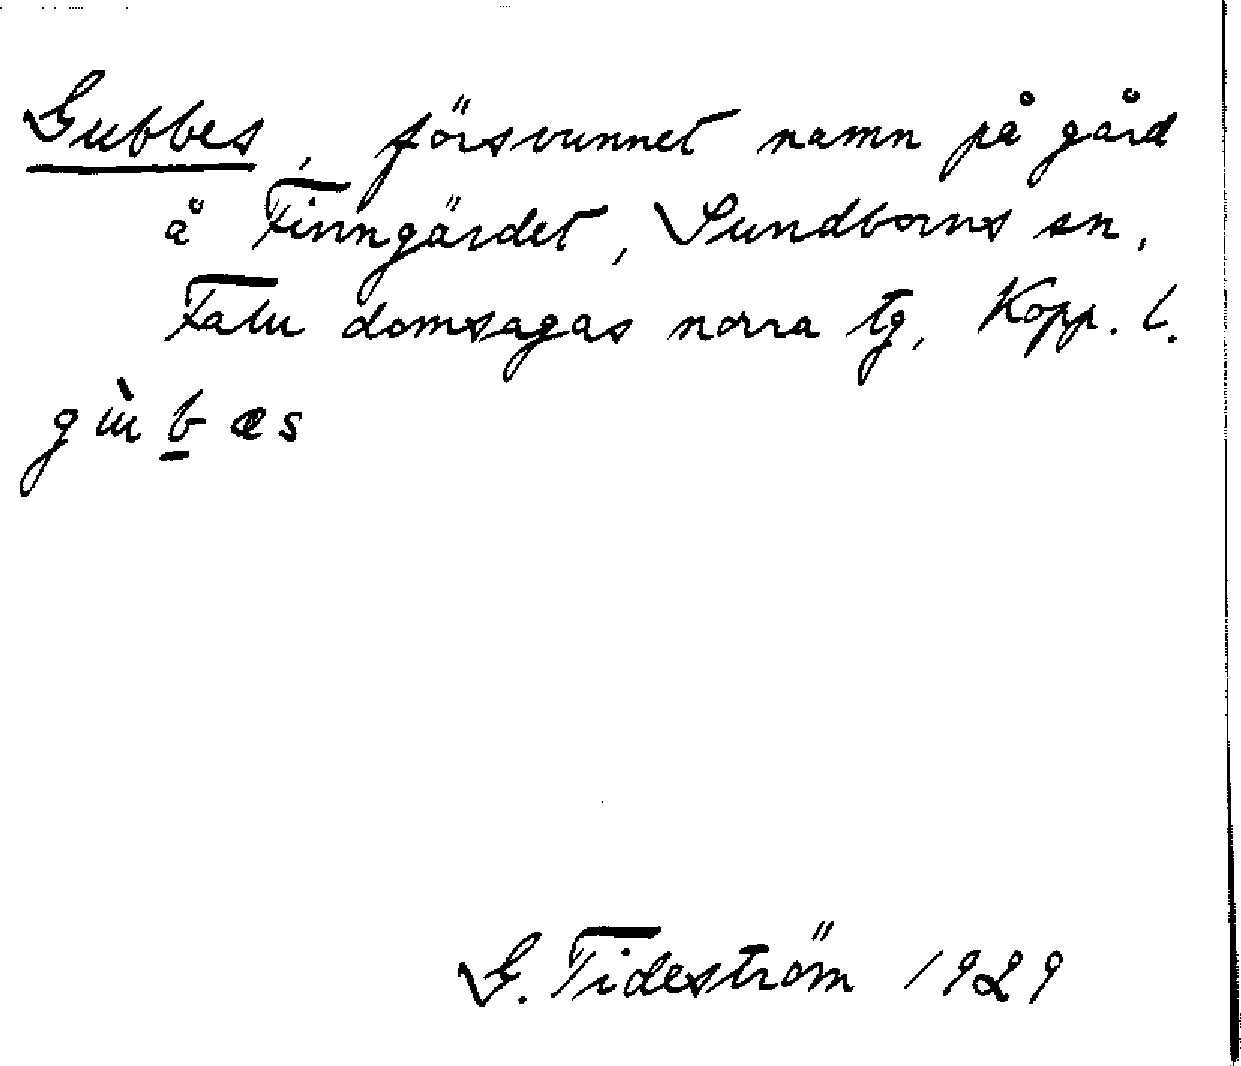 Gubbes, försvunnet namn på gård
å Finngärdet, Sundborns sn,
Falu domsagas norra tg, Kopp. l.
gùbæs
G. Tideström 1929